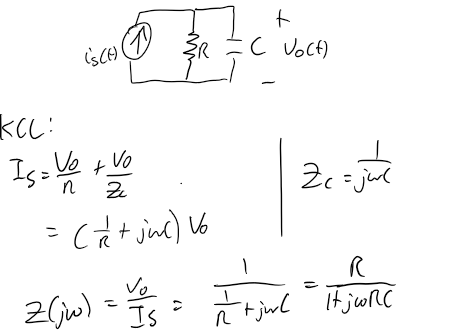 +
is(t) R C Vo(t)
-
KCL:
Is = Vo/R + Vo/Zc
= (1/R + jωC) Vo
Zc = 1/jωC
Z(jω) = Vo/Is = 1/(1/R + jωC) = R/(1+jωRC)